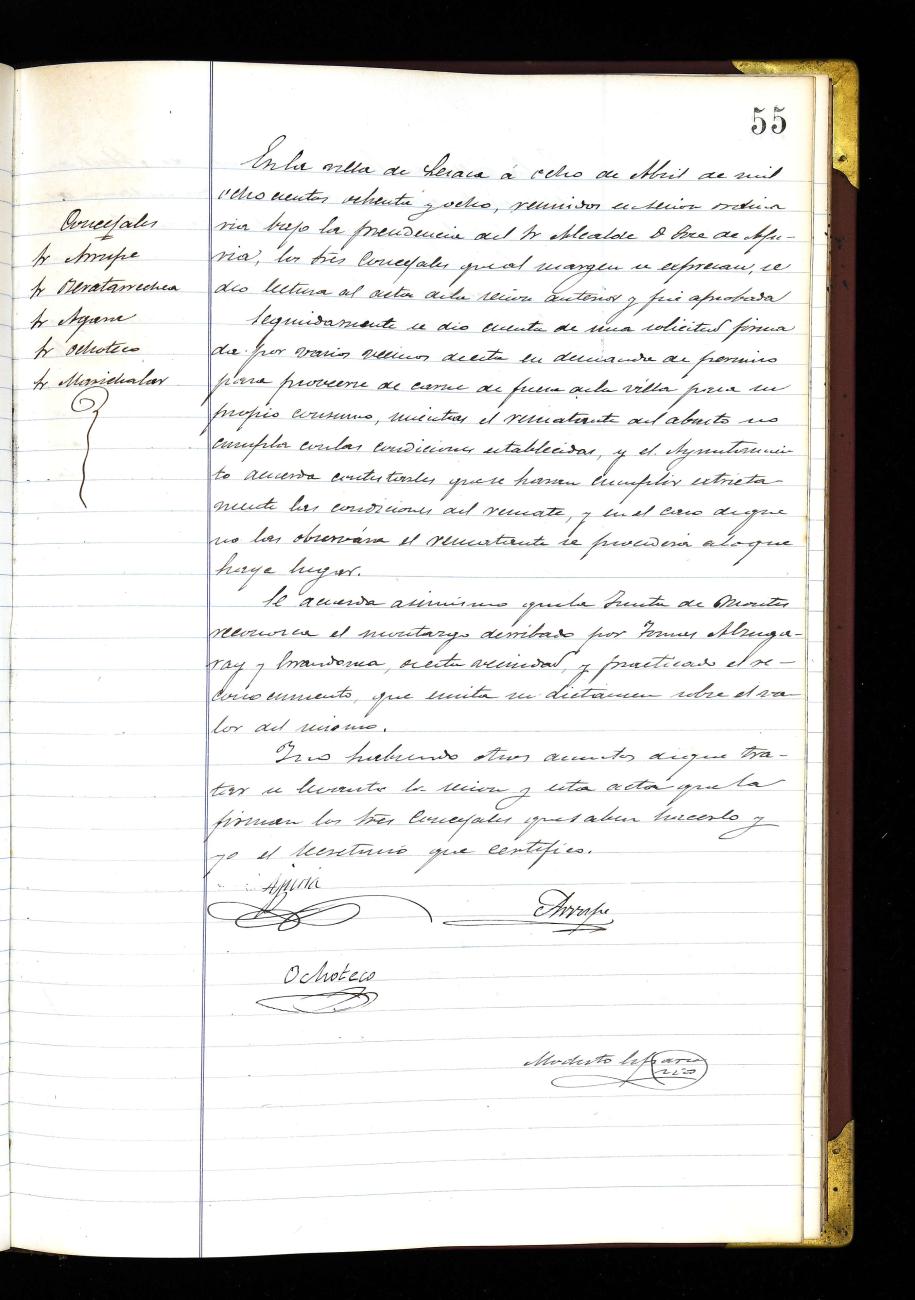 55
Concejales
Sr Arrupe
Sr Beratarrechea
Sr Agara
Sr Ochoteco
Sr Marichalar
En la villa de Lesaca á ocho de Abril de mil
ochocientos ochenta y ocho, reunidos en sesion ordina
ria bajo la presidencia del Sr Alcalde D Jose de Apu-
ria, los Sres Concejales que al margen se expresan, se
dió lectura al acta de la sesion anterior y fué aprobada
Seguidamente se dio cuenta de una solicitud firma
da por varios vecinos de esta en demanda de permiso
para proveerse de carne de fuera de la villa para su
propio consumo, mientras el rematante del abasto no
cumpla con las condiciones establecidas, y el Ayuntamien
to acuerda contestarles que se haran cumplir estricta
mente las condiciones del remate, y en el caso de que
no las observára el rematante se procederá a lo que
haya lugar.
Se acuerda asimismo que la Junta de Montes
reconozca el montazgo derribado por Tomas Alzuga-
ray y Errandonea, de esta vecindad, y practicado el re-
conocimiento, que emita su dictámen sobre el va-
lor del mismo.
Y no habiendo otros asuntos de que tra-
tar se levanto la sesion y esta acta que la
firman los Sres Concejales que saben hacerlo y
yo el Secretario que certifico.
Apuria
Arrupe
Ochoteco
Modesto